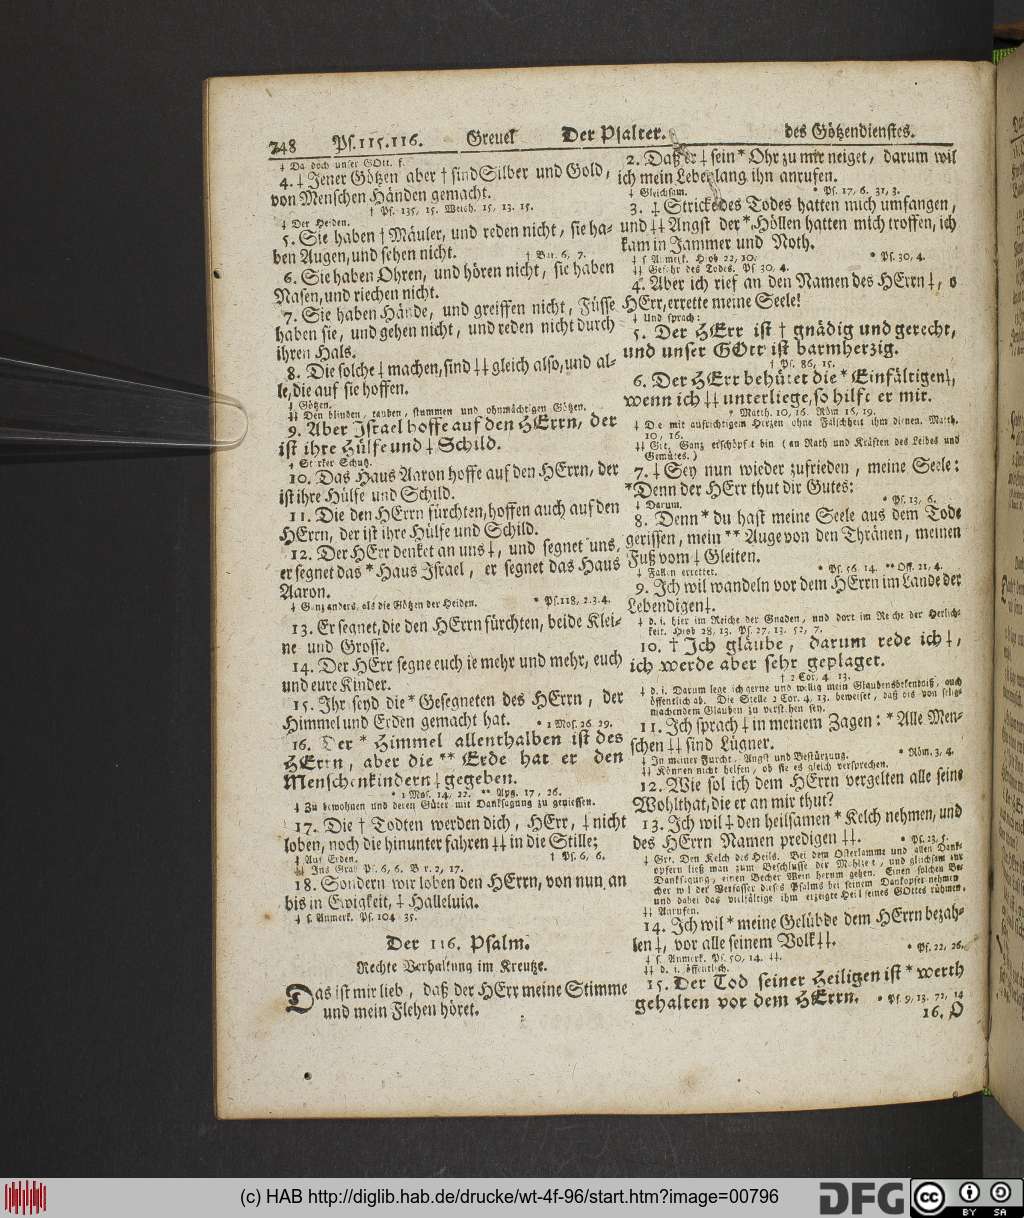 748 Ps. 115. 116. Greuel Der Psalter. des Götzendienstes.
‡ Da doch unser GOtt. f.
4. ‡ Jener Götzen aber † sind Silber und Gold,
von Menschen Händen gemacht.
† Ps. 135, 15. Weish. 15, 13. 15.
‡ Der Heiden.
5. Sie haben † Mäuler, und reden nicht, sie ha-
ben Augen, und sehen nicht. † Bar. 6, 7.
6. Sie haben Ohren, und hören nicht, sie haben
Nasen, und riechen nicht.
7. Sie haben Hände, und greiffen nicht, Füsse
haben sie, und gehen nicht, und reden nicht durch
ihren Hals.
8. Die solche ‡ machen, sind ‡‡ gleich also, und al-
le, die auf sie hoffen.
‡ Götzen.
‡‡ Den blinden, tauben, stummen und ohnmächtigen Götzen.
9. Aber Israel hoffe auf den HErrn, der
ist ihre Hülfe und ‡ Schild.
‡ Starker Schutz.
10. Das Haus Aaron hoffe auf den HErrn, der
ist ihre Hülfe und Schild.
11. Die den HErrn fürchten, hoffen auch auf den
HErrn, der ist ihre Hülfe und Schild.
12. Der HErr denket an uns ‡, und segnet uns,
er segnet das * Haus Israel, er segnet das Haus
Aaron.
‡ Ganz anders, als die Götzen der Heiden. * Ps. 118, 2. 3. 4.
13. Er segnet, die den HErrn fürchten, beide Klei-
ne und Grosse.
14. Der HErr segne euch je mehr und mehr, euch
und eure Kinder.
15. Ihr seyd die * Gesegneten des HErrn, der
Himmel und Erden gemacht hat. * 1 Mos. 26. 29.
16. Der * Himmel allenthalben ist des
HErrn, aber die ** Erde hat er den
Menschenkindern ‡ gegeben.
* 1 Mos. 14, 22. ** Apg. 17, 26.
‡ Zu bewohnen und deren Güter mit Danksagung zu geniessen.
17. Die † Todten werden dich, HErr, ‡ nicht
loben, noch die hinunter fahren ‡‡ in die Stille;
‡ Auf Erden. † Ps. 6, 6.
‡‡ Ins Grab Ps. 6, 6. Bar. 2, 17.
18. Sondern wir loben den HErrn, von nun an
bis in Ewigkeit, ‡ Halleluia.
‡ s. Anmerk. Ps. 104 35.
Der 116. Psalm.
Rechte Verhaltung im Kreutze.
Das ist mir lieb, daß der HErr meine Stimme
und mein Flehen höret.
2. Daß er ‡ sein * Ohr zu mir neiget, darum wil
ich mein Lebenlang ihn anrufen.
‡ Gleichsam. * Ps. 17, 6. 31, 3.
3. ‡ Stricke des Todes hatten mich umfangen,
und ‡‡ Angst der * Höllen hatten mich troffen, ich
kam in Jammer und Noth.
‡ s Anmerk. Hiob 22, 10. * Ps. 30, 4.
‡‡ Gefahr des Todes. Ps. 30, 4.
4. Aber ich rief an den Namen des HErrn ‡, o
HErr, errette meine Seele!
‡ Und sprach:
5. Der HErr ist † gnädig und gerecht,
und unser GOtt ist barmherzig.
† Ps. 86, 15.
6. Der HErr behütet die * Einfältigen ‡,
wenn ich ‡‡ unterliege, so hilft er mir.
* Matth. 10, 16. Röm. 16, 19.
‡ Die mit aufrichtigem Herzen ohne Falschheit ihm dienen. Matth.
10, 16.
‡‡ Gr. Ganz erschöpfet bin (an Rath und Kräften des Leibes und
Gemütes.)
7. ‡ Sey nun wieder zufrieden, meine Seele:
* Denn der HErr thut dir Gutes:
‡ Darum. * Ps. 13, 6.
8. Denn * du hast meine Seele aus dem Tode
gerissen, mein ** Auge von den Thränen, meinen
Fuß vom ‡ Gleiten.
‡ Fallen errettet. * Ps. 56, 14. ** Off. 21, 4.
9. Ich wil wandeln vor dem HErrn im Lande der
Lebendigen ‡.
‡ d. i. hier im Reiche der Gnaden, und dort im Reiche der Herlich-
keit. Hiob 28, 13. Ps. 27, 13. 52, 7.
10. † Ich gläube, darum rede ich ‡,
ich werde aber sehr geplaget.
† 2 Cor. 4. 13.
‡ d. i. Darum lege ich gerne und willig mein Glaubensbekentniß, auch
öffentlich ab. Die Stelle 2 Cor. 4, 13. beweiset, daß dis von selig-
machendem Glauben zu verstehen sey.
11. Ich sprach ‡ in meinem Zagen: * Alle Men-
schen ‡‡ sind Lügner.
‡ In meiner Furcht, Angst und Bestürzung. * Röm. 3, 4.
‡‡ Können nicht helfen, ob sie es gleich versprechen.
12. Wie sol ich dem HErrn vergelten alle seine
Wohlthat, die er an mir thut?
13. Ich wil ‡ den heilsamen * Kelch nehmen, und
des HErrn Namen predigen ‡‡. * Ps. 23, 5.
‡ Gr. Den Kelch des Heils. Bei dem Osterlamme und allen Dank-
opfern ließ man zum Beschlusse der Mahlzeit, und gleichsam zur
Danksagung, einen Becher Wein herum gehen. Einen solchen Be-
cher wil der Verfasser dieses Psalms bei seinem Dankopfer nehmen
und dabei das vielfältige ihm erzeigte Heil seines GOttes rühmen.
‡‡ Anrufen.
14. Ich wil * meine Gelübde dem HErrn bezah-
len ‡, vor alle seinem Volk ‡‡. * Ps. 22, 26.
‡ s. Anmerk. Ps. 50, 14. ‡‡.
‡‡ d. i. öffentlich.
15. Der Tod seiner Heiligen ist * werth
gehalten vor dem HErrn. * Ps. 9, 13. 72, 14
16. O
(c) HAB http://diglib.hab.de/drucke/wt-4f-96/start.htm?image=00796
DFG cc BY SA